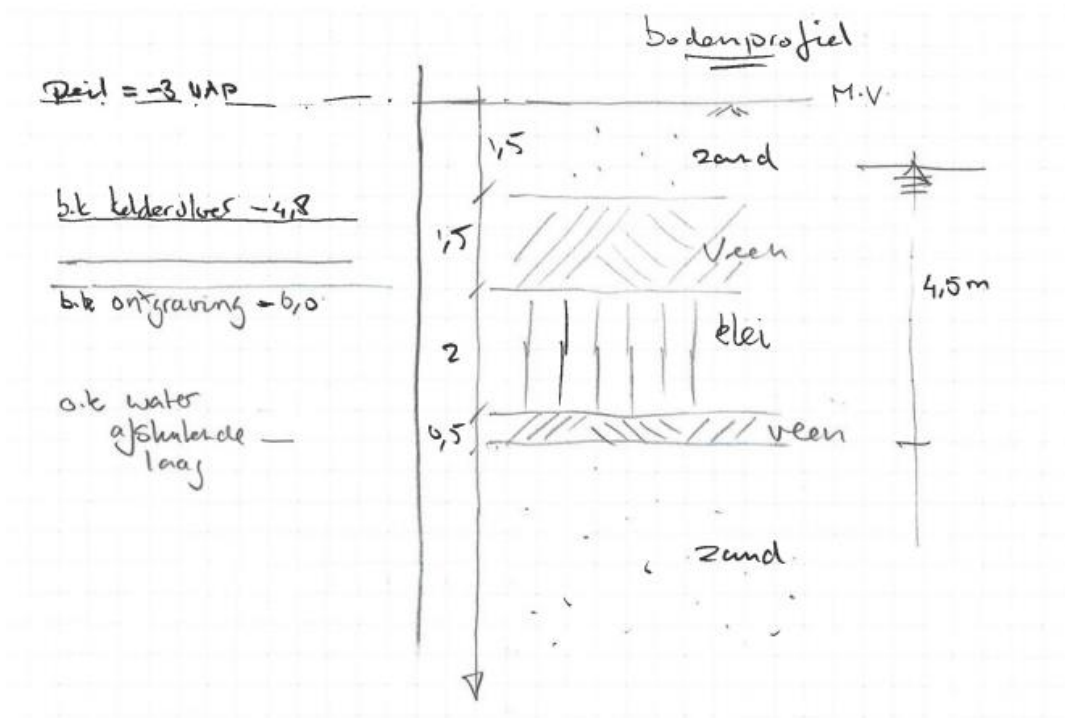 bodemprofiel
Peil = -3 NAP
M.V.
1,5
zand
b.k keldervloer -4,8
1,5
Veen
4,5m
b.k ontgraving -6,0
klei
2
o.k water
afsluitende
laag
0,5
veen
zand